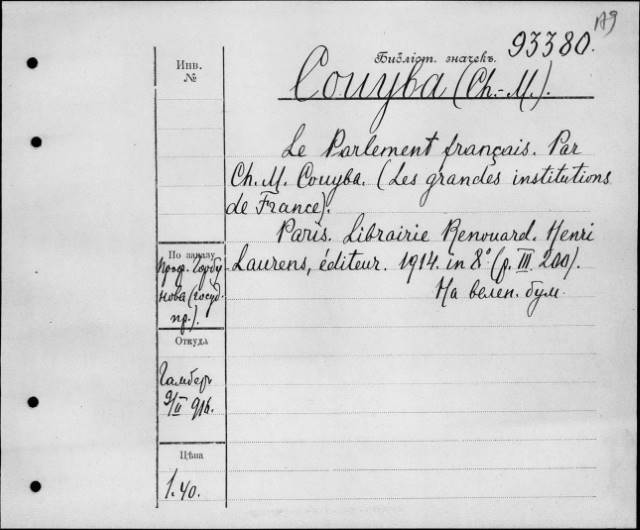 A9
Библіот. значекъ.
93380.
Инв.
№
Couyba (Ch.-M.).
Le Parlement français. Par
Ch. M. Couyba. (Les grandes institutions
de France).
Paris. Librairie Renouard. Henri
Laurens, éditeur. 1914. in 8° (p. III. 200).
На велен. бум.
По заказу
Проф. Горбу
нова (госуд.
пр.).
Откуда
Гамберъ
9/II 916.
Цѣна
1.40.